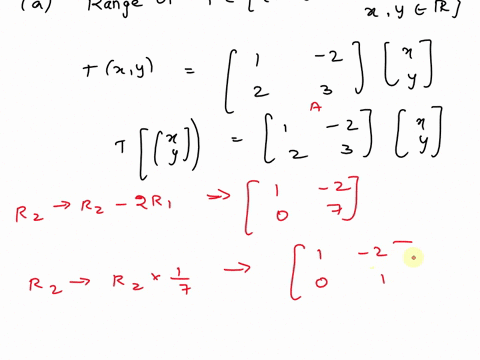 (a) Range of
x, y ∈ ℝ}
T(x,y) = [1 -2; 2 3] [x; y]
A
T[(x; y)] = [1 -2; 2 3] [x; y]
R₂ → R₂ - 2R₁ ⇒ [1 -2; 0 7]
R₂ → R₂ × 1/7 → [1 -2; 0 1